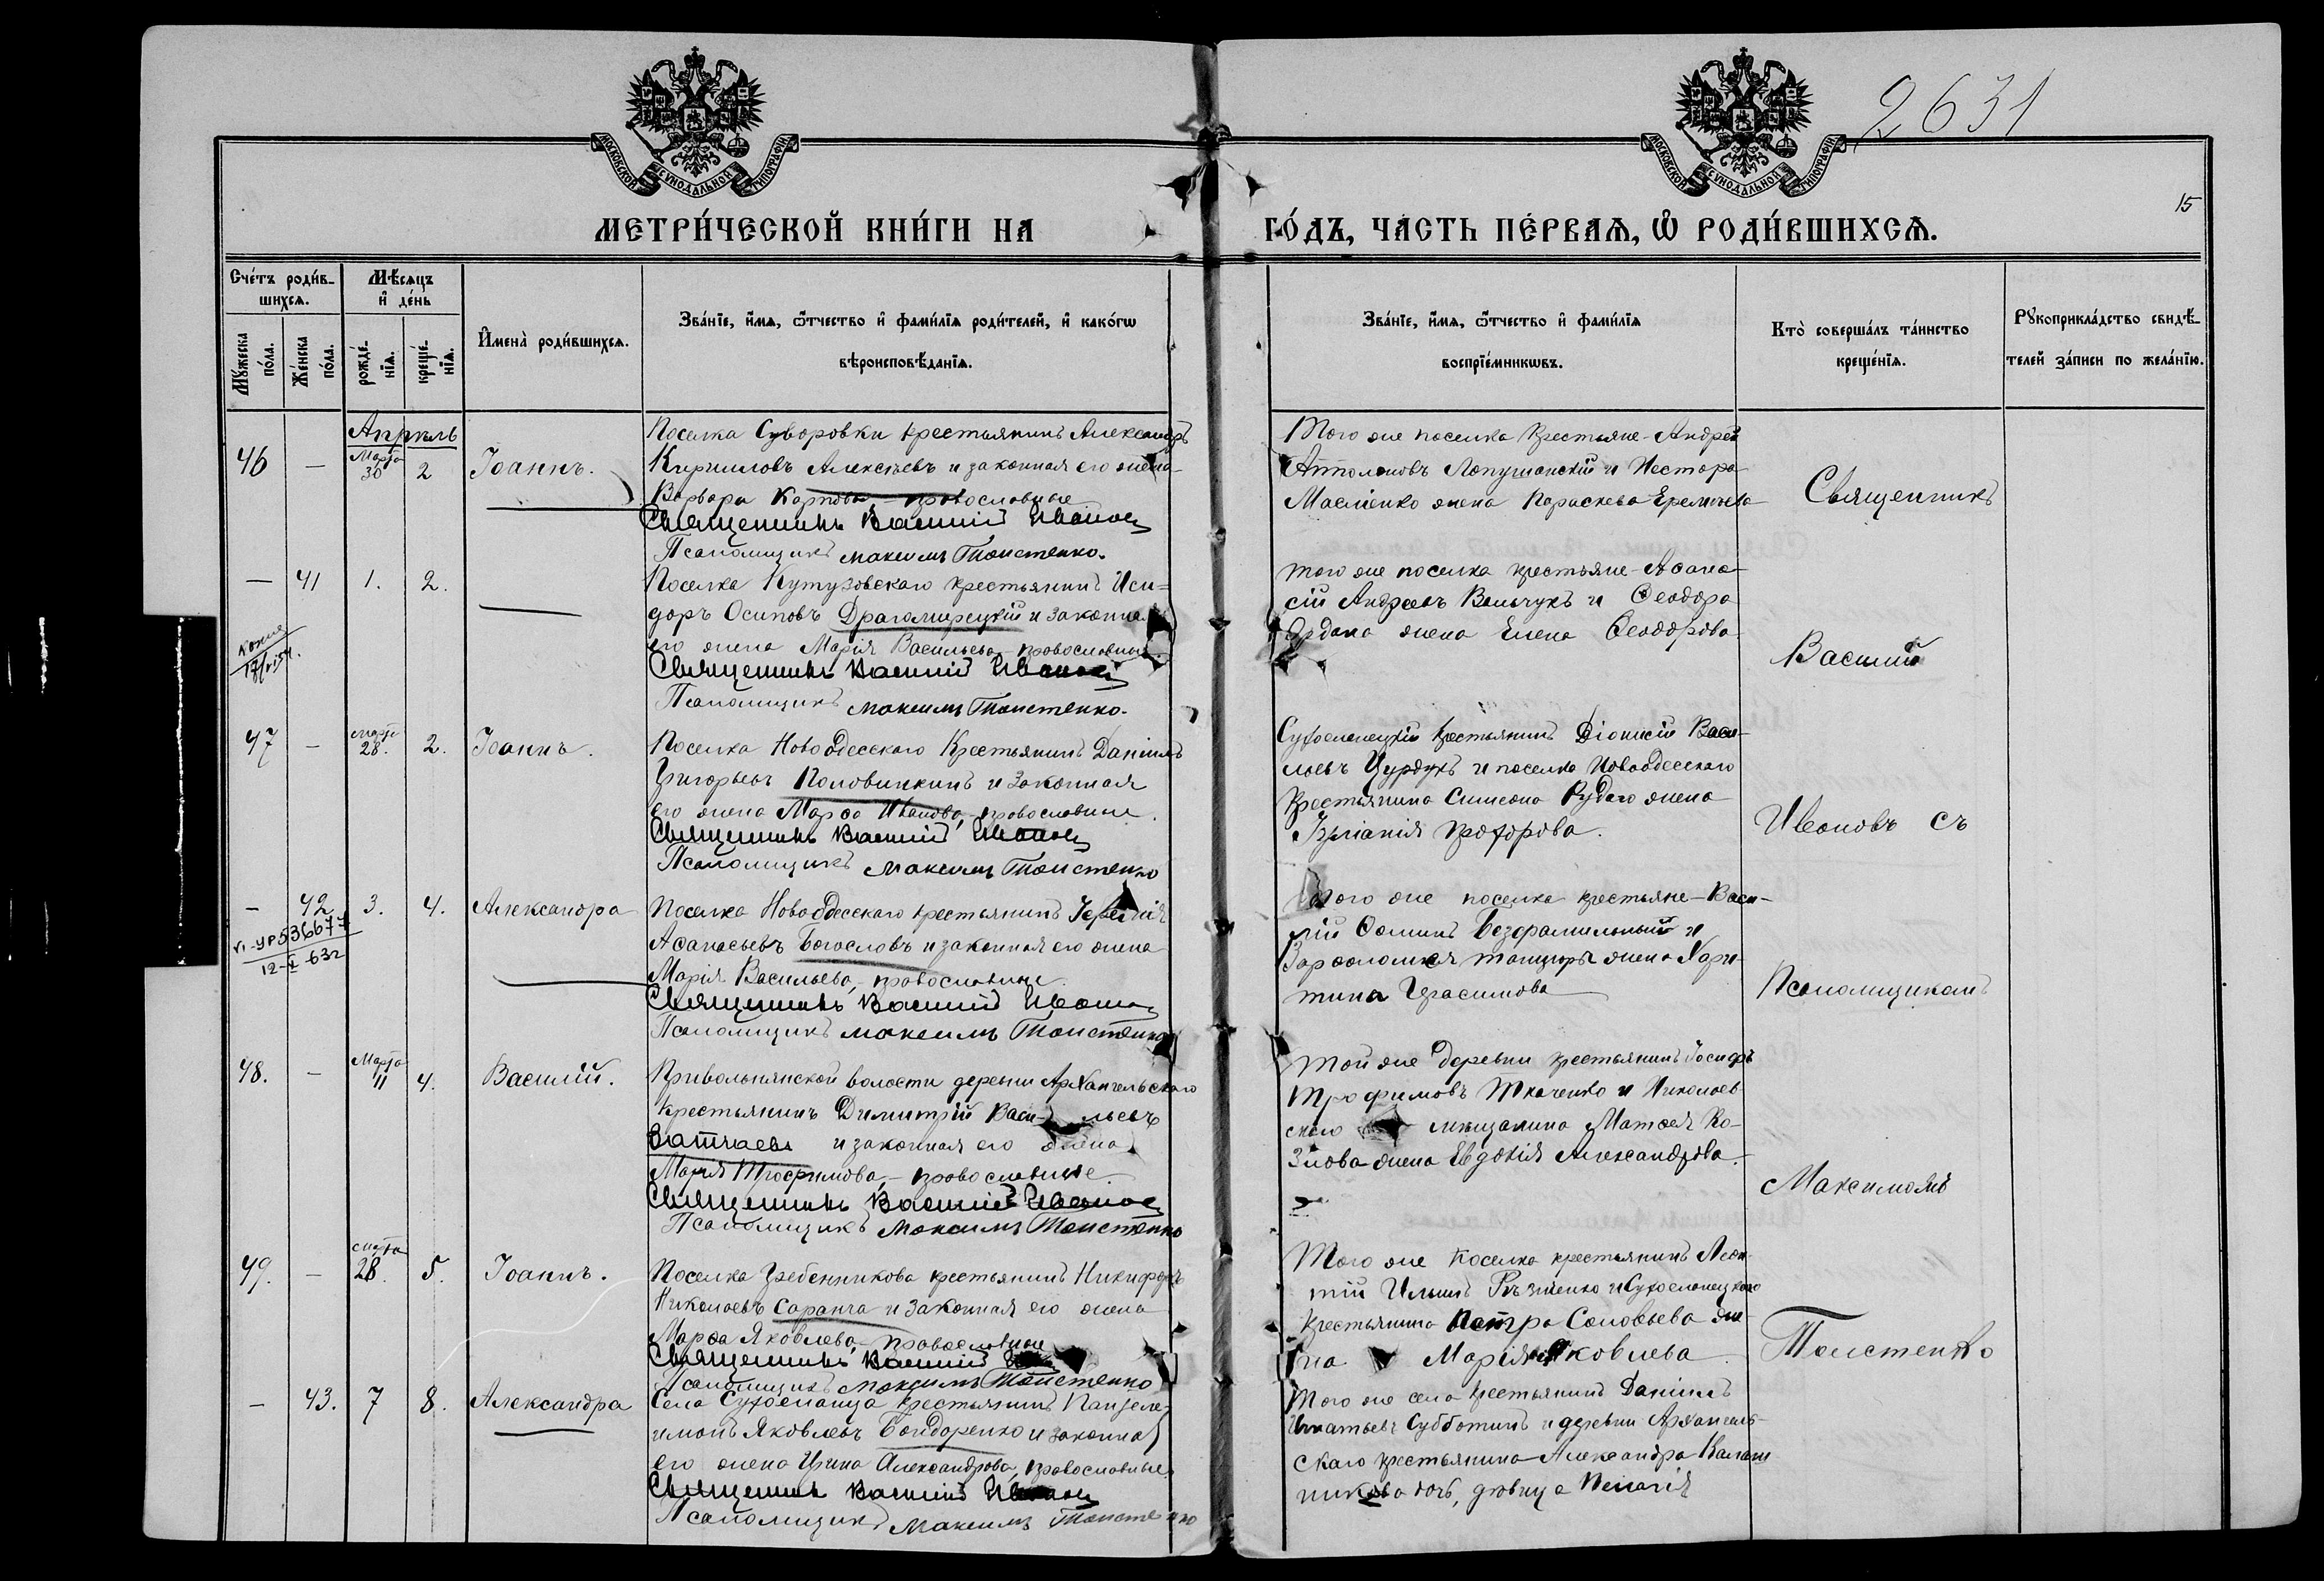 2631
15
МОСКОВСКОЙ СѴНОДАЛЬНОЙ ТИПОГРАФІИ
МОСКОВСКОЙ СѴНОДАЛЬНОЙ ТИПОГРАФІИ
МЕТРИ́ЧЕСКОЙ КНИ́ГИ НА
ГО́ДЪ, ЧА́СТЬ ПЕ́РВАѦ, Ѽ РОДИ́ВШИХСѦ.
Сче́тъ роди́в-
шихсѧ.
Мѣ́сѧцъ
и҆ де́нь
Мꙋ́жеска
по́ла.
Же́нска
по́ла.
рожде́-
нїѧ.
креще́-
нїѧ.
И҆мена̀ роди́вшихсѧ.
Зва́нїе, и҆́мѧ, ѻ҆́тчество и҆ фами́лїѧ роди́телей, и҆ како́гѡ
вѣроисповѣ́данїѧ.
Зва́нїе, и҆́мѧ, ѻ҆́тчество и҆ фами́лїѧ
воспрїе́мникѡвъ.
Кто̀ соверша́лъ та́инство
креще́нїѧ.
Рꙋкоприкла́дство свидѣ́-
телей за́писи по жела́нїю.
Апрѣль
46 — Марта 30 2 Іоаннъ.
Поселка Суворовки крестьянинъ Александръ
Кирилловъ Алексѣевъ и законная его жена
Варвара Карпова,- православные
Священникъ Василій Ивановъ
Псаломщикъ Максимъ Толстенко.
Того же поселка крестьяне - Андрей
Лопушанскій и Нестора
жена Параскева
— 41 1. 2.
Копія
Поселка Кутузовскаго крестьянинъ Иси-
доръ Осиповъ Драгомирецкій и законная
его жена Марія Васильева - православные.
Священникъ Василій Ивановъ
Псаломщикъ Максимъ Толстенко.
того же поселка крестьяне - Аѳана-
сій Андреевъ Вальчукъ и Ѳеодора
жена Елена Ѳеодорова
47 — Март 28. 2. Іоаннъ.
Поселка Новоодесскаго Крестьянинъ Даніилъ
Григорьевъ Половинкинъ и законная
его жена Марѳа Иванова, православные.
Священникъ Василій Ивановъ
Псаломщикъ Максимъ Толстенко
Сухоеланецкій крестьянинъ Діонисій Васи-
льевъ Цурдукъ и поселка Новоодесскаго
крестьянина Симеона Рудого жена
Іуліанія Прохорова.
— 42 3. 4. Александра
VI-УР 536677
12-X-63г
Поселка Новоодесскаго крестьянинъ Іеремія
Аѳанасьевъ Богословъ и законная его жена
Марія Васильева,- православные.
Священникъ Василій Ивановъ
Псаломщикъ Максимъ Толстенко
Того же поселка крестьяне - Васи-
лій Ѳоминъ Безфамильный и
Варѳоломея жена Хари-
тина Герасимова
48. — Марта 11 4. Василій.
Привольнянской волости деревни Архангельскаго
крестьянинъ Димитрій Васильевъ
и законная его жена
Марія Трофимова,- православные.
Священникъ Василій Ивановъ
Псаломщикъ Максимъ Толстенко
Той же деревни крестьянинъ Іосифъ
Трофимовъ Ткаченко и Николаев-
скаго мѣщанина Матѳея Ко-
злова жена Евдокія Александрова.
49. — Марта 28. 5. Іоаннъ.
Поселка Гребенникова крестьянинъ Никифоръ
Николаевъ Саранча и законная его жена
Марѳа Яковлева,- православные
Священникъ Василій
Псаломщикъ Максимъ Толстенко
Того же поселка крестьянинъ Леон-
тій Ильинъ и Сухоеланецкаго
крестьянина Петра Соловьева же-
на Марія Яковлева.
— 43. 7 8. Александра
Села Сухоеланца крестьянинъ Пантеле-
имонъ Яковлевъ Бондаренко и законная
его жена Ирина Александрова, православные.
Священникъ Василій Ивановъ
Псаломщикъ Максимъ Толстенко
Того же села крестьянинъ Даніилъ
Игнатьевъ Субботинъ и деревни Архангель-
скаго крестьянина Александра Калаш
никова дочь, дѣвица Пелагія
Священникъ
Василій
Ивановъ съ
Псаломщикомъ
Максимомъ
Толстенко